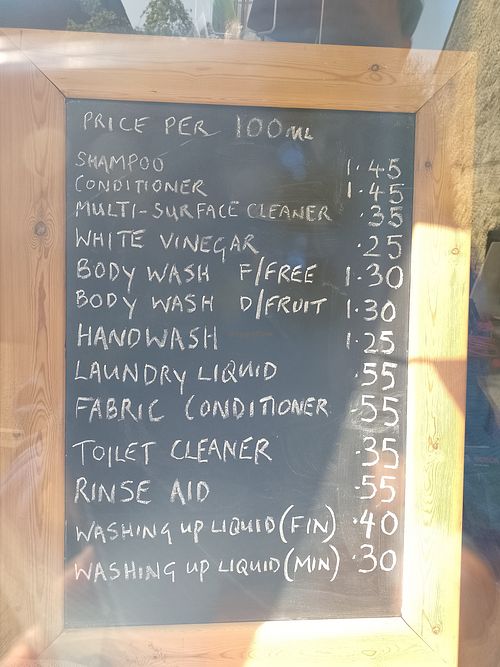 PRICE PER 100ML
SHAMPOO 1.45
CONDITIONER 1.45
MULTI-SURFACE CLEANER .35
WHITE VINEGAR .25
BODY WASH F/FREE 1.30
BODY WASH D/FRUIT 1.30
HANDWASH 1.25
LAUNDRY LIQUID .55
FABRIC CONDITIONER .55
TOILET CLEANER .35
RINSE AID .55
WASHING UP LIQUID (FIN) .40
WASHING UP LIQUID (MIN) .30